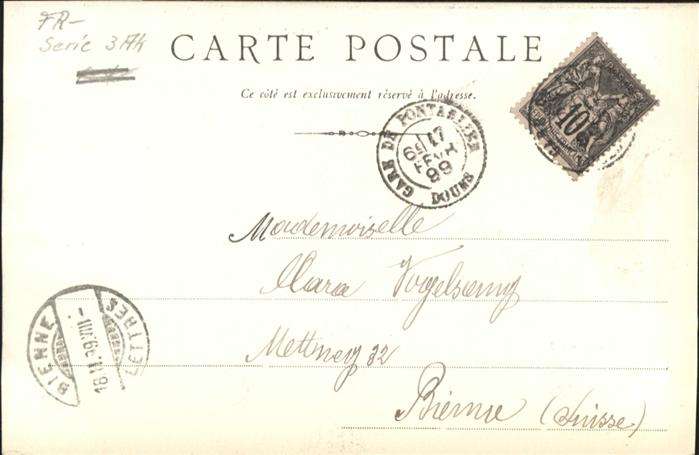 FR-
Serie 3Ak
CARTE POSTALE
Ce côté est exclusivement réservé à l'adresse.
GARE DE PONTARLIER
17
FEVR
99
DOUBS
10
Mademoiselle
Clara Vogelsang
Mettweg 32
Bienne (Suisse)
BIENNE
LETTRES